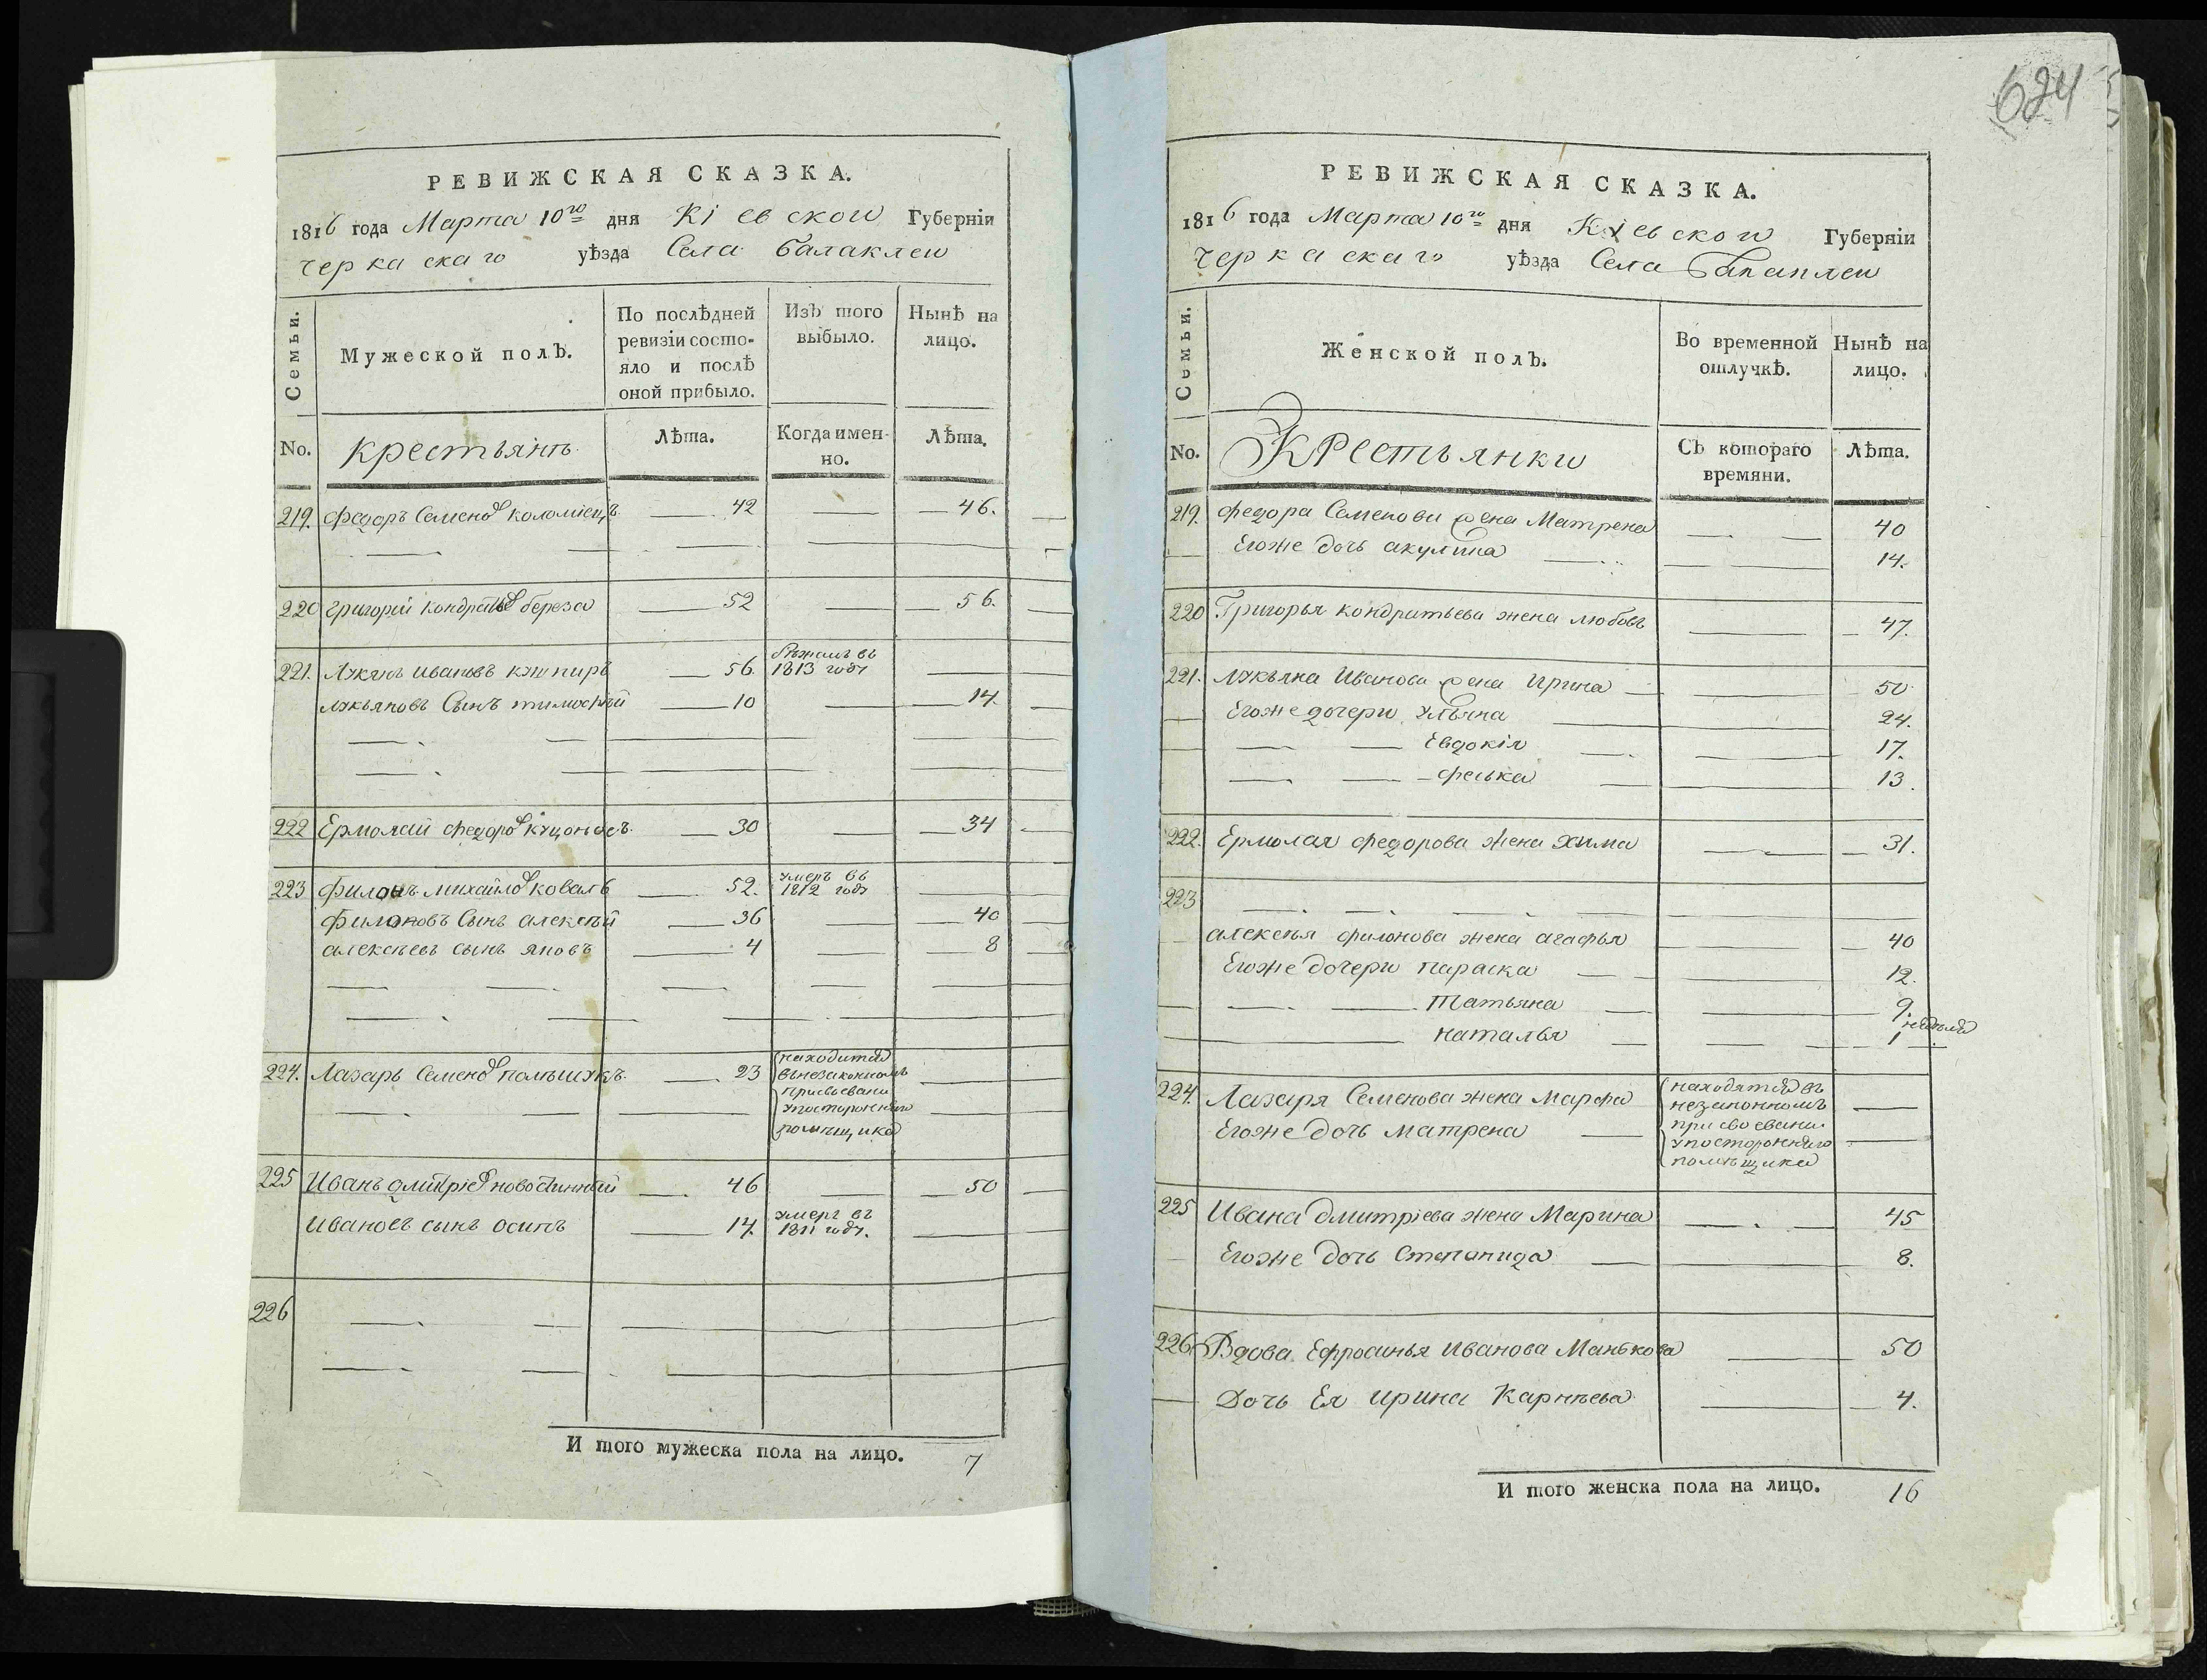 624
РЕВИЖСКАЯ СКАЗКА.
1816 года Марта 10го дня Кіевской Губерніи
Черкаскаго уѣзда Села Балаклеи
Семьи.
Мужеской полъ.
По послѣдней ревизіи состо-
яло и послѣ
оной прибыло.
Изъ того
выбыло.
Нынѣ на
лицо.
No.
Крестьянъ
Лѣта.
Когда имен-
но.
Лѣта.
219. Федоръ Семеновъ Коломіецъ 42 46.
220 Григорій Кондратьевъ Береза 52 56.
221. Лукянъ Ивановъ Кушниръ 56. бѣжалъ въ
1813 году
Лукьяновъ Сынъ Тимофѣй 10 14.
222 Ермолай Федоровъ Куцоносъ 30 34
223 Филонъ Михайловъ Коваль 52. умеръ въ
1812 году
Филоновъ Сынъ Алексѣй 36 40
Алексѣевъ сынъ Яковъ 4 8
224. Лазарь Семеновъ 23 находится
въ незаконномъ
присвоеваніи
у посторонняго
помѣщика
225 Иванъ Дмитріевъ 46 50
Ивановъ сынъ Осипъ 14. умеръ въ
1811 году.
226
И того мужеска пола на лицо. 7
РЕВИЖСКАЯ СКАЗКА.
1816 года Марта 10го дня Кіевской Губерніи
Черкаскаго уѣзда Села Балаклеи
Семьи.
Женской полъ.
Во временной
отлучкѣ.
Нынѣ на
лицо.
No.
Крестьянки
Съ котораго
времяни.
Лѣта.
219. Федора Семенова жена Матрена 40
Егоже дочь Акулина 14.
220 Григорья Кондратьева жена Любовъ 47.
221. Лукьяна Иванова жена Ирина 50
Егоже дочери Ульяна 24.
Евдокія 17.
Феська 13.
222. Ермолая Федорова жена Хима 31.
223
Алексѣя Филонова жена Агафья 40
Егоже дочери Параска 12.
Татьяна 9.
Наталья 1 недѣля
224. Лазаря Семенова жена Марфа находятся въ
незаконномъ
Егоже дочь Матрена присвоеваніи
у посторонняго
помѣщика
225 Ивана Дмитріева жена Марина 45
Егоже дочь Степанида 8.
226. Вдова Ефросинья Иванова Манькова 50
Дочь Ея Ирина Карнѣева 4.
И того женска пола на лицо. 16